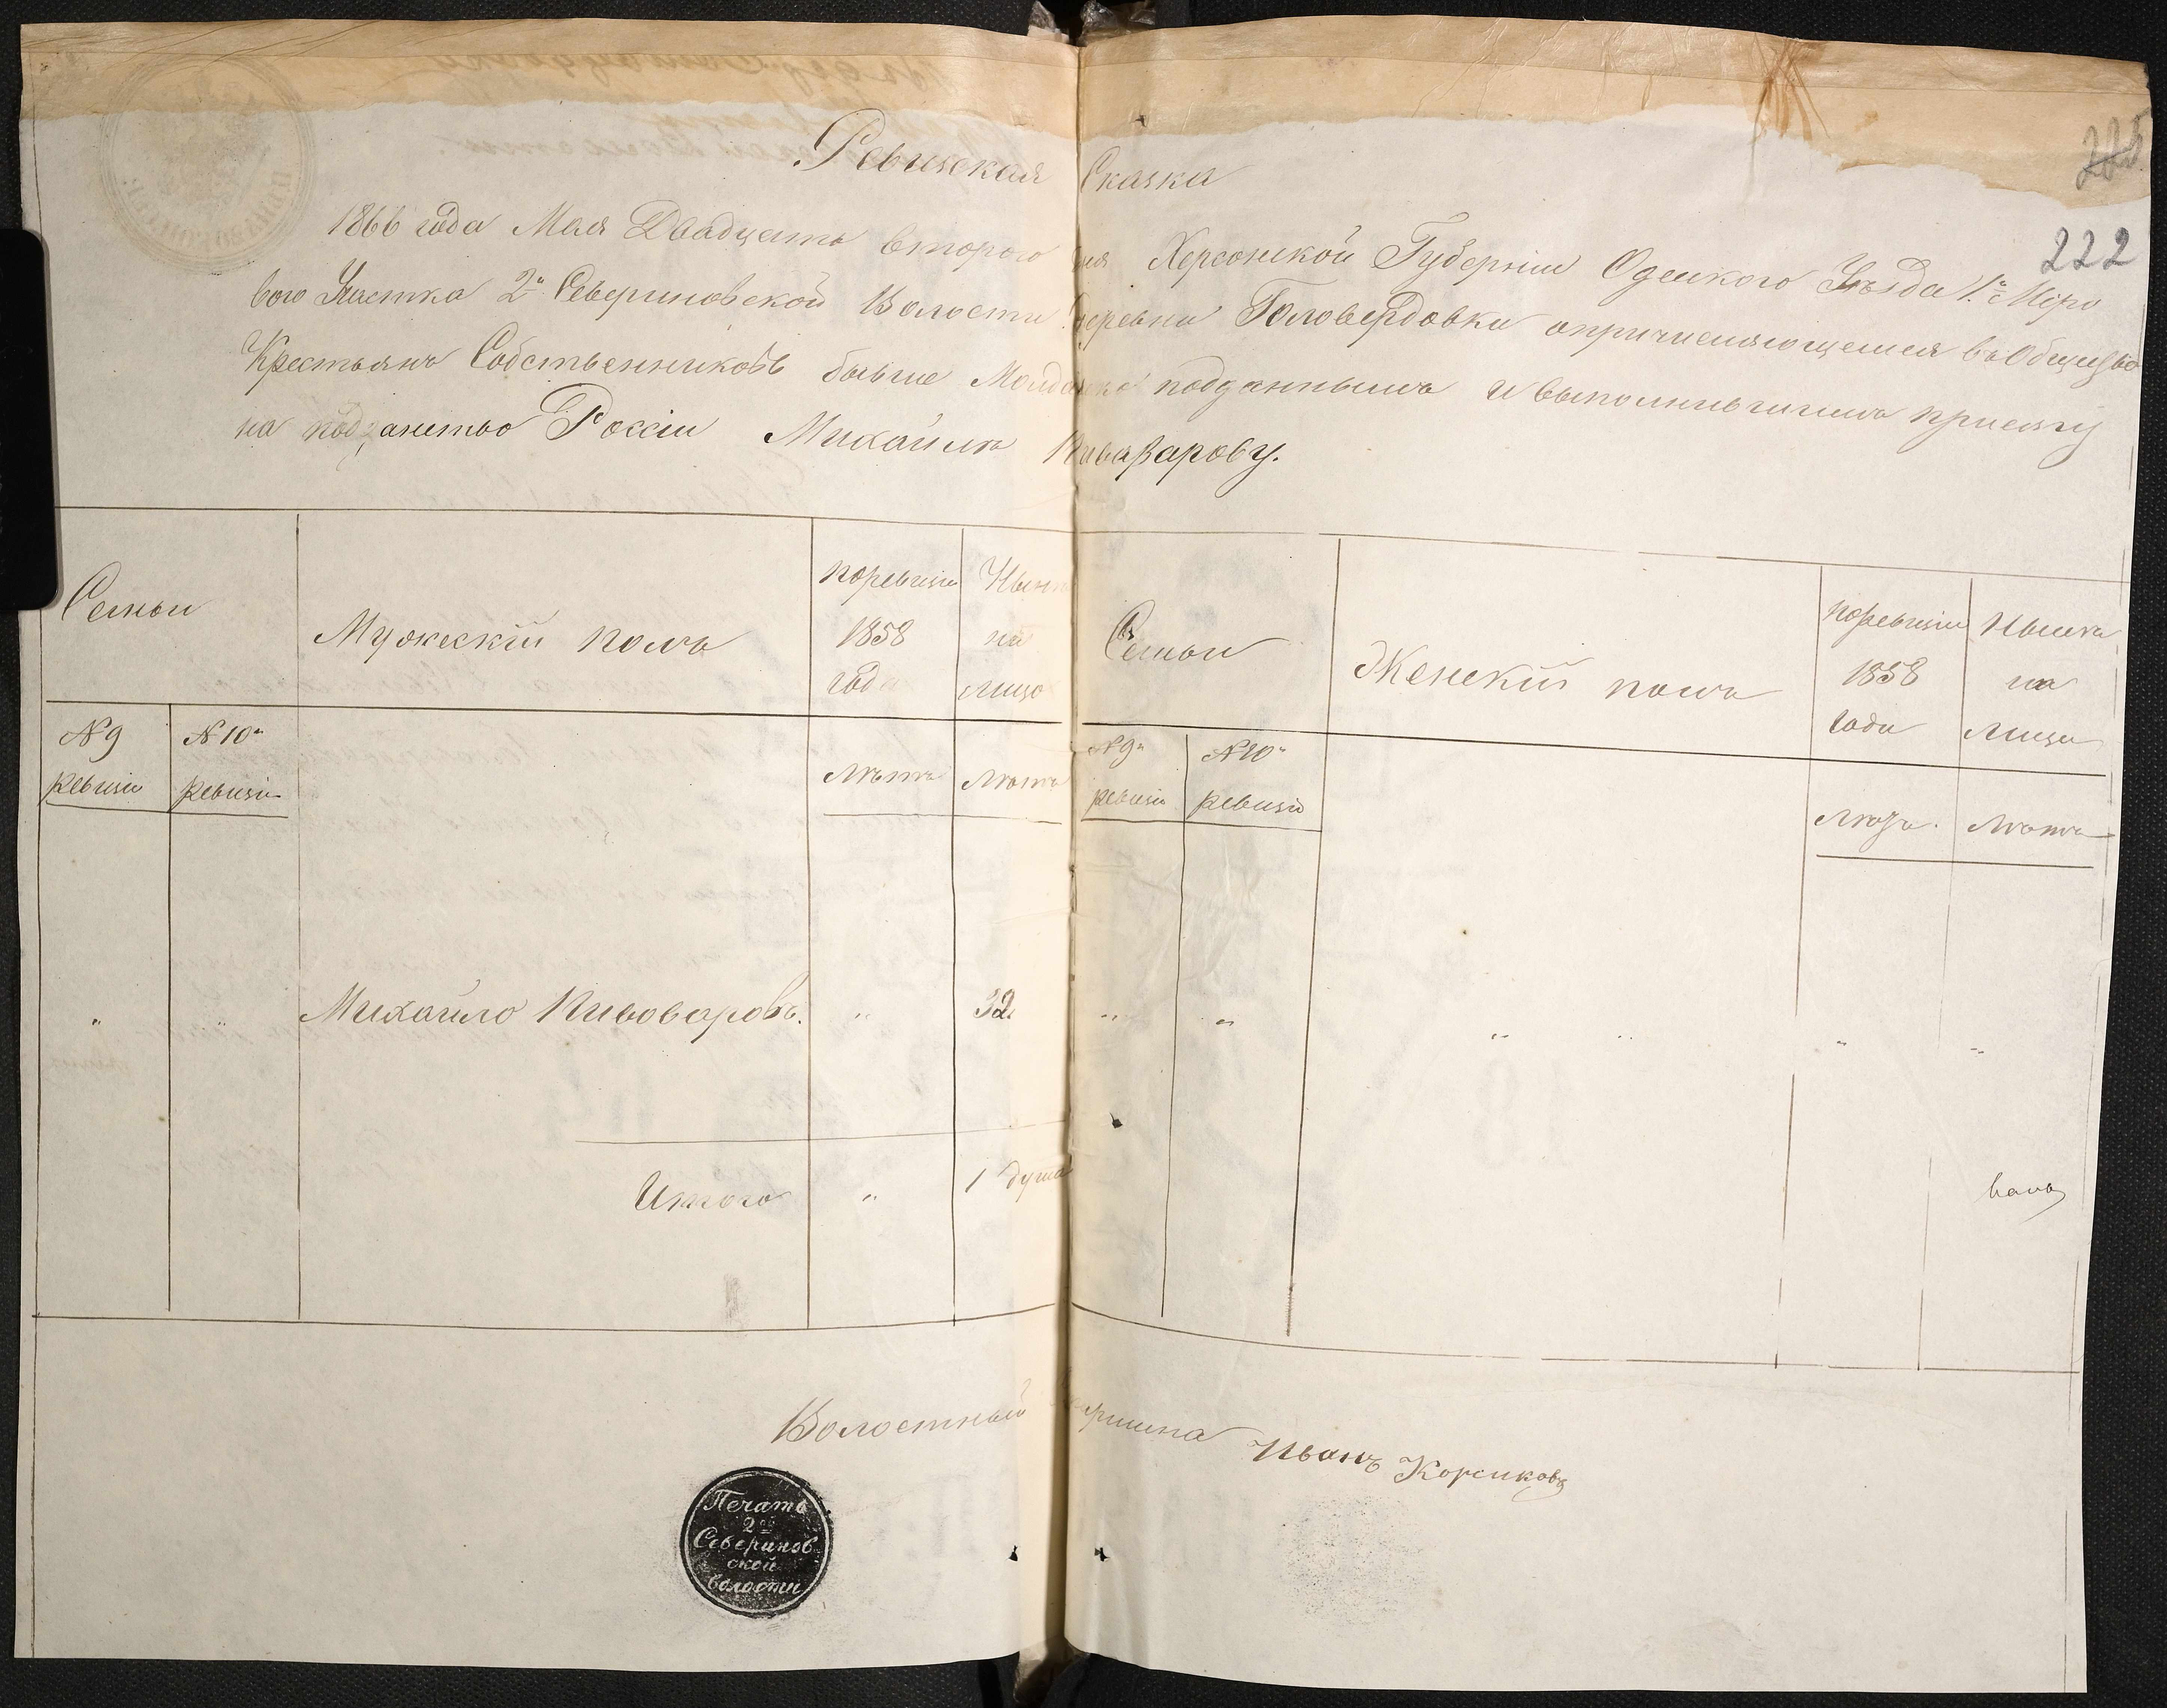 Ревизская Сказка
225
222
1866 года Мая Двадцать второго дня Херсонской Губерніи Одескаго Уѣзда 1го Миро
вого Участка 2й Севериновской Волости Деревни Головердовки о причисляющемся въ Общество
Крестьянъ Собственниковъ бывше Молдавско подданнымъ и выполнившимъ присягу
на подданство Россіи Михайлѣ Пивафарову.
Семьи
Мужескій полъ
по ревизіи 1858 года
Нынѣ на лицо
Семьи
Женскій полъ
по ревизіи 1858 года
Нынѣ на лицо
№ 9 ревизіи
№ 10й ревизіи
лѣта
лѣта
№ 9й ревизіи
№ 10й ревизіи
лѣта
лѣта
" " Михайло Пивоваровъ. " 32. " " " " " "
Итого " 1 душа
Волостный Старшина Иванъ Корсиковъ
Печать
2й
Северинов
ской
волости